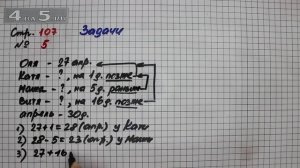 4 на 5
Стр. 107
Задачи
№ 5
Оля - 27 апр.
Катя - ?, на 1 д. позже
Маша - ?, на 5 д. раньше
Витя - ?, на 16 д. позже
апрель - 30 д.
1) 27+1=28 (апр.) у Кати
2) 28-5=23 (апр.) у Маши
3) 27+16